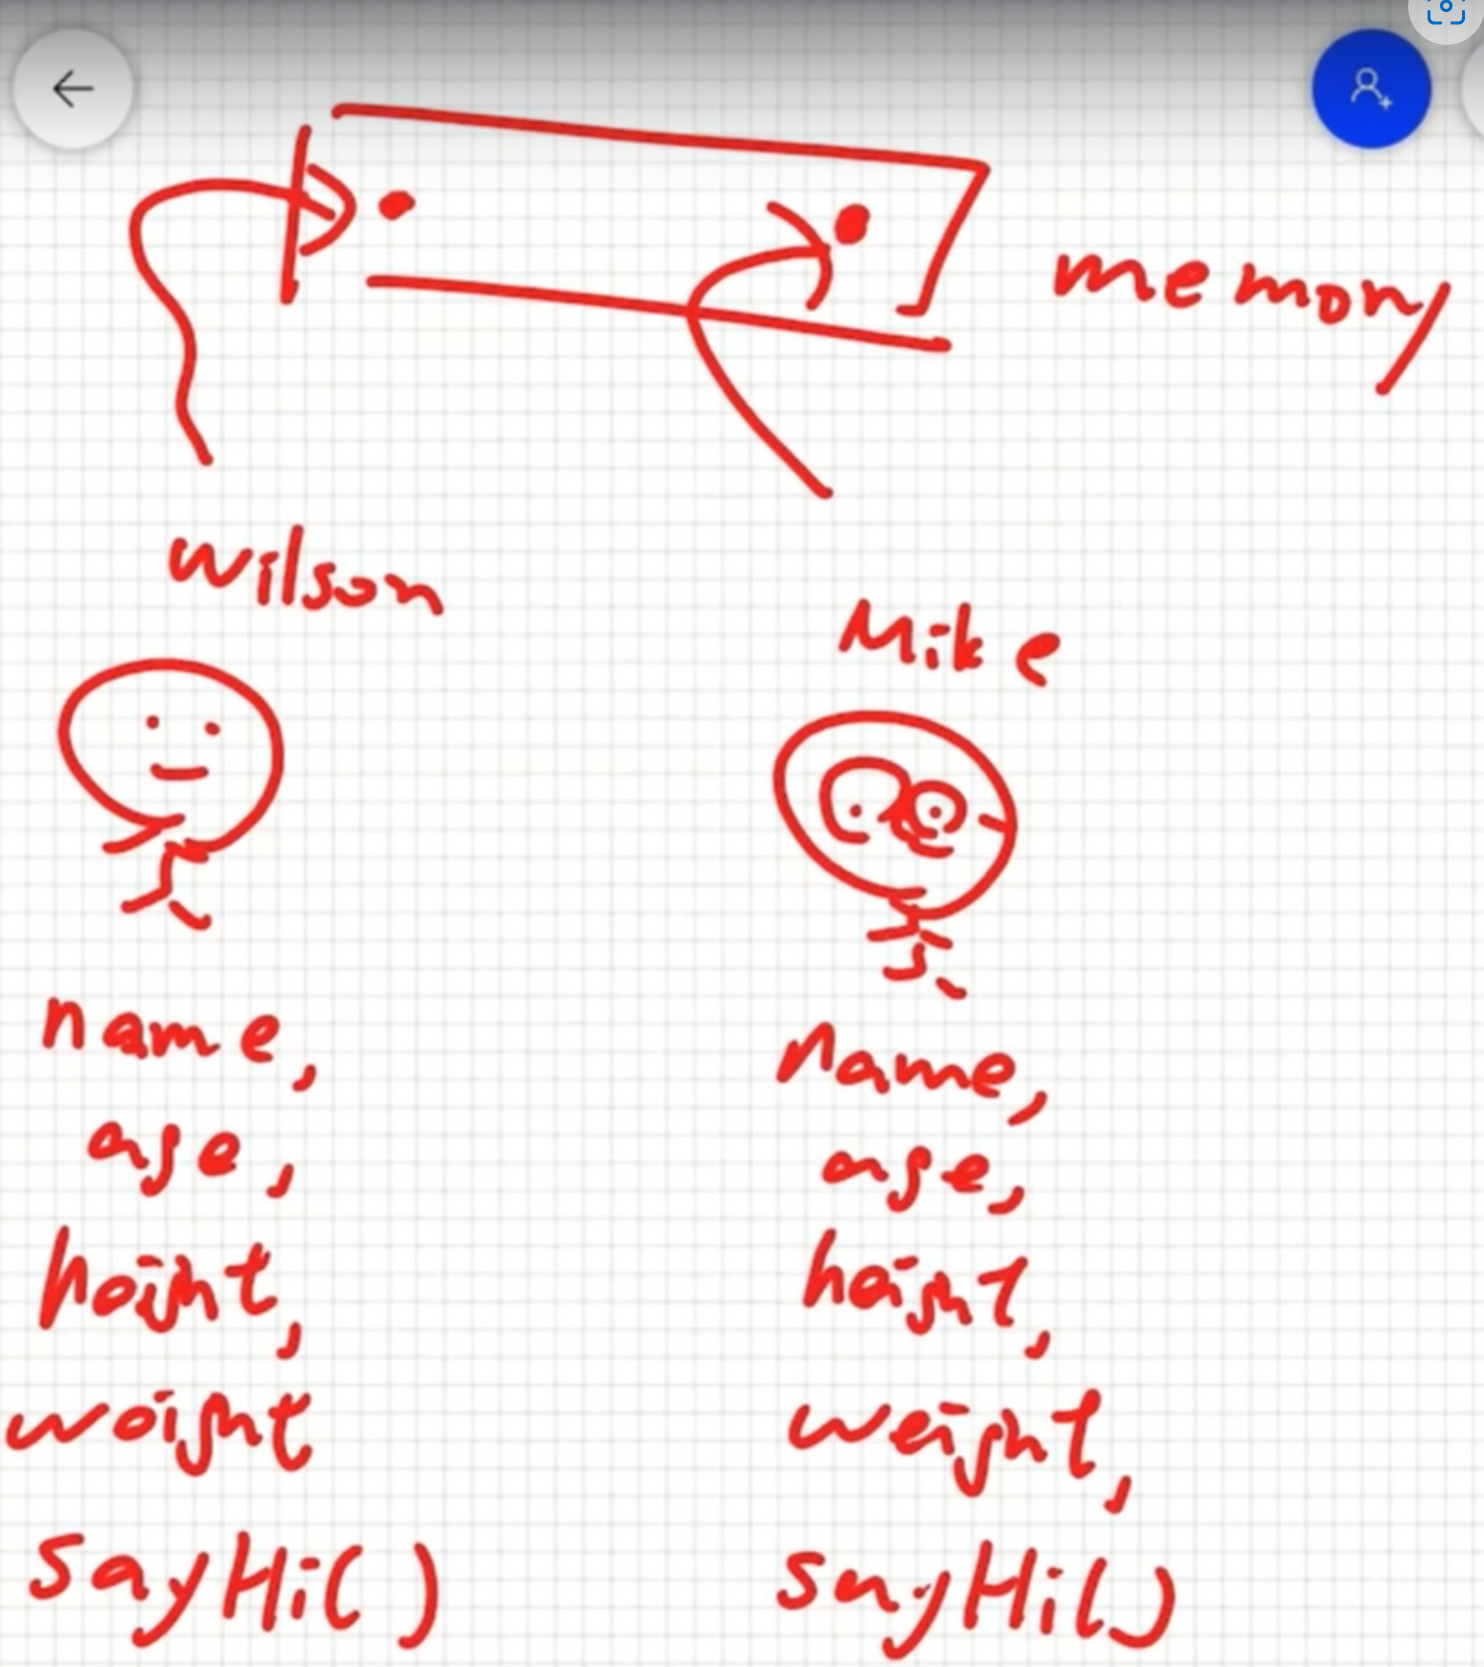 memory
Wilson
Mike
name,
age,
height,
weight
sayHi()
Name,
age,
height,
weight,
sayHi()